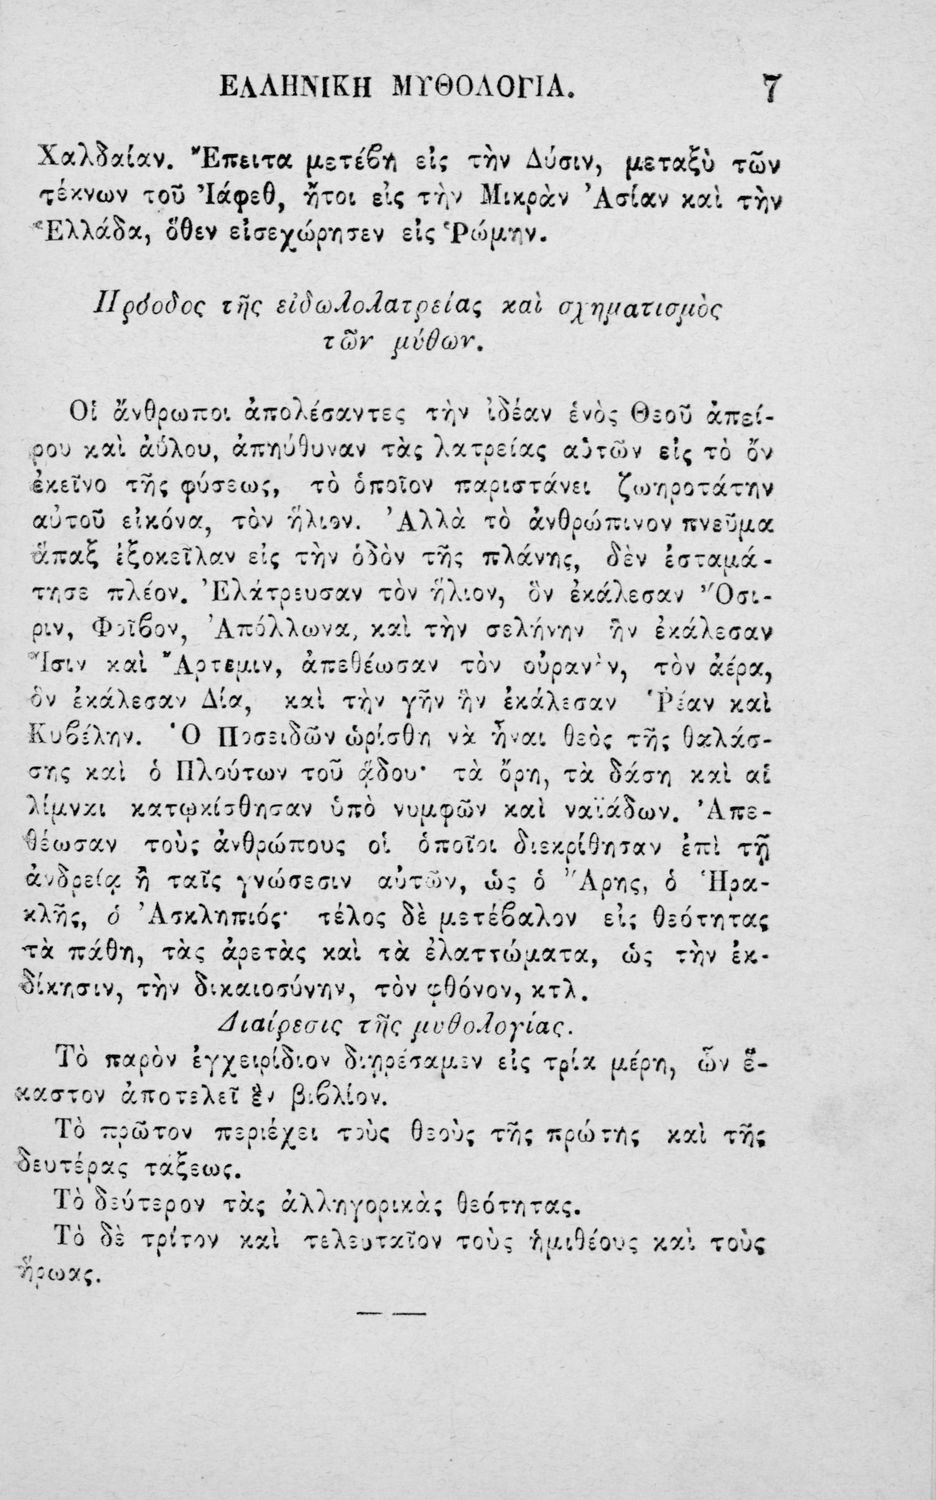 ΕΛΛΗΝΙΚΗ ΜΥΘΟΛΟΓΙΑ. 7
Χαλδαίαν. Ἔπειτα μετέβη εἰς τὴν Δύσιν, μεταξὺ τῶν
τέκνων τοῦ Ἰάφεθ, ἤτοι εἰς τὴν Μικρὰν Ἀσίαν καὶ τὴν
Ἑλλάδα, ὅθεν εἰσεχώρησεν εἰς Ῥώμην.
Πρόοδος τῆς εἰδωλολατρείας καὶ σχηματισμὸς
τῶν μύθων.
Οἱ ἄνθρωποι ἀπολέσαντες τὴν ἰδέαν ἑνὸς Θεοῦ ἀπεί-
ρου καὶ ἀΰλου, ἀπηύθυναν τὰς λατρείας αὑτῶν εἰς τὸ ὂν
ἐκεῖνο τῆς φύσεως, τὸ ὁποῖον παριστάνει ζωηροτάτην
αὐτοῦ εἰκόνα, τὸν ἥλιον. Ἀλλὰ τὸ ἀνθρώπινον πνεῦμα
ἅπαξ ἐξοκεῖλαν εἰς τὴν ὁδὸν τῆς πλάνης, δὲν ἐσταμά-
τησε πλέον. Ἐλάτρευσαν τὸν ἥλιον, ὃν ἐκάλεσαν Ὄσι-
ριν, Φοῖβον, Ἀπόλλωνα, καὶ τὴν σελήνην ἣν ἐκάλεσαν
Ἴσιν καὶ Ἄρτεμιν, ἀπεθέωσαν τὸν οὐρανὸν, τὸν ἀέρα,
ὃν ἐκάλεσαν Δία, καὶ τὴν γῆν ἣν ἐκάλεσαν Ῥέαν καὶ
Κυβέλην. Ὁ Ποσειδῶν ὡρίσθη νὰ ἦναι θεὸς τῆς θαλάσ-
σης καὶ ὁ Πλούτων τοῦ ᾅδου· τὰ ὄρη, τὰ δάση καὶ αἱ
λίμναι κατῳκίσθησαν ὑπὸ νυμφῶν καὶ ναϊάδων. Ἀπε-
θέωσαν τοὺς ἀνθρώπους οἱ ὁποῖοι διεκρίθησαν ἐπὶ τῇ
ἀνδρείᾳ ἢ ταῖς γνώσεσιν αὐτῶν, ὡς ὁ Ἄρης, ὁ Ἡρα-
κλῆς, ὁ Ἀσκληπιός· τέλος δὲ μετέβαλον εἰς θεότητας
τὰ πάθη, τὰς ἀρετὰς καὶ τὰ ἐλαττώματα, ὡς τὴν ἐκ-
δίκησιν, τὴν δικαιοσύνην, τὸν φθόνον, κτλ.
Διαίρεσις τῆς μυθολογίας.
Τὸ παρὸν ἐγχειρίδιον διῃρέσαμεν εἰς τρία μέρη, ὧν ἕ-
καστον ἀποτελεῖ ἓν βιβλίον.
Τὸ πρῶτον περιέχει τοὺς θεοὺς τῆς πρώτης καὶ τῆς
δευτέρας τάξεως.
Τὸ δεύτερον τὰς ἀλληγορικὰς θεότητας.
Τὸ δὲ τρίτον καὶ τελευταῖον τοὺς ἡμιθέους καὶ τοὺς
ἥρωας.